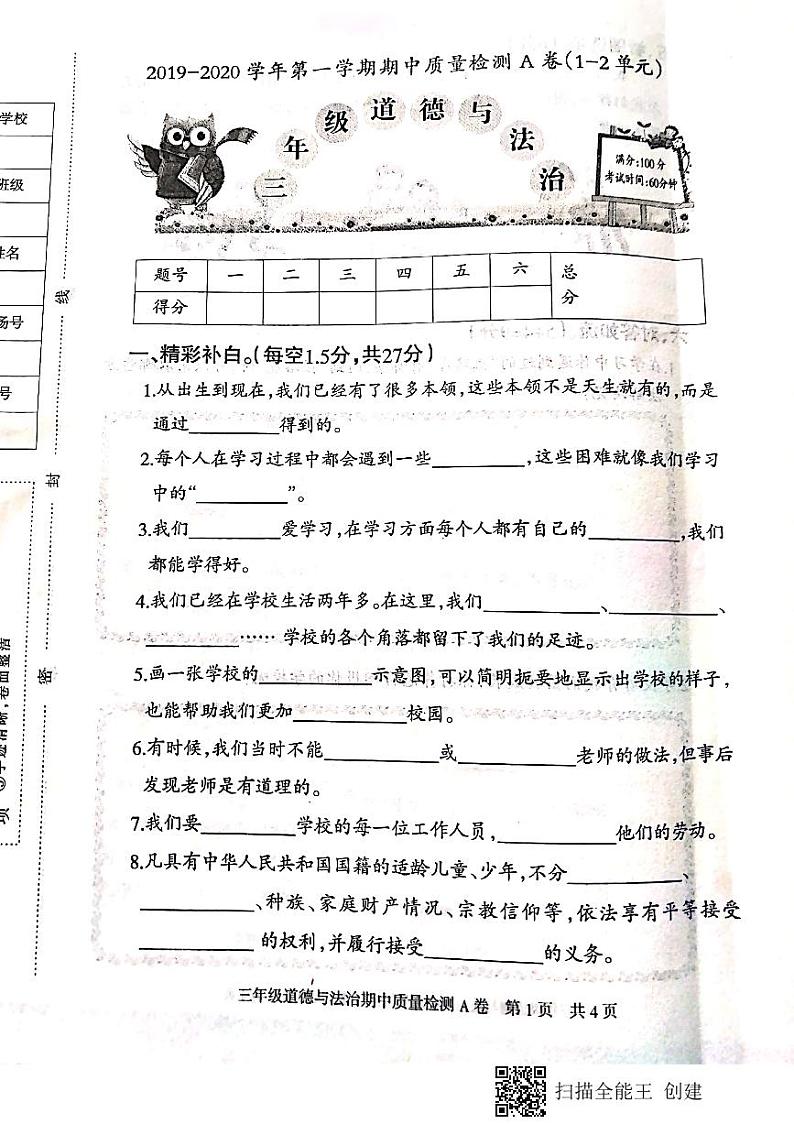 2019-2020学年第一学期期中质量检测A卷(1-2单元)
三年级道德与法治
满分:100分
考试时间:60分钟
学校
班级
姓名
场号
号
线
封
密
题号 一 二 三 四 五 六 总分
得分
一、精彩补白。(每空1.5分,共27分)
1.从出生到现在,我们已经有了很多本领,这些本领不是天生就有的,而是
通过________得到的。
2.每个人在学习过程中都会遇到一些________,这些困难就像我们学习
中的“________”。
3.我们________爱学习,在学习方面每个人都有自己的________,我们
都能学得好。
4.我们已经在学校生活两年多。在这里,我们________、________、
________……学校的各个角落都留下了我们的足迹。
5.画一张学校的________示意图,可以简明扼要地显示出学校的样子,
也能帮助我们更加________校园。
6.有时候,我们当时不能________或________老师的做法,但事后
发现老师是有道理的。
7.我们要________学校的每一位工作人员,________他们的劳动。
8.凡具有中华人民共和国国籍的适龄儿童、少年,不分________、
________、种族、家庭财产情况、宗教信仰等,依法享有平等接受
________的权利,并履行接受________的义务。
三年级道德与法治期中质量检测A卷 第1页 共4页
扫描全能王 创建